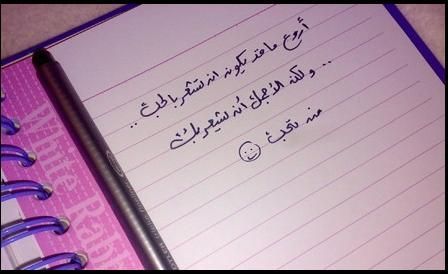 أروع ما قد يكون ان تشعر بالحب ..
.. ولكن الأجمل أن يشعر بك
من تحب ☺
White Rab